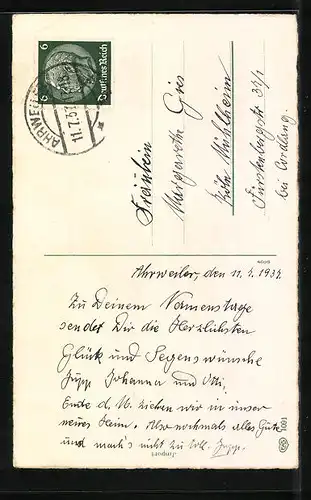 6 6
Deutsches Reich
AHRWEILER
11.7.37
Fräulein
Margarethe Gris
Köln Mühlheim
Fürstenbergstr 3²/1
bei Cordlang.
Ahrweiler, den 11.7.1937.
Zu Deinem Namenstage
sendet Dir die Herzlichsten
Glück und Segenswünsche
Jupp Johanna und Otti,
Ende d. M. ziehen wir in unser
neues Heim. Also nochmals alles Gute
und mach's nicht zu toll. Jupp.
Import
1001